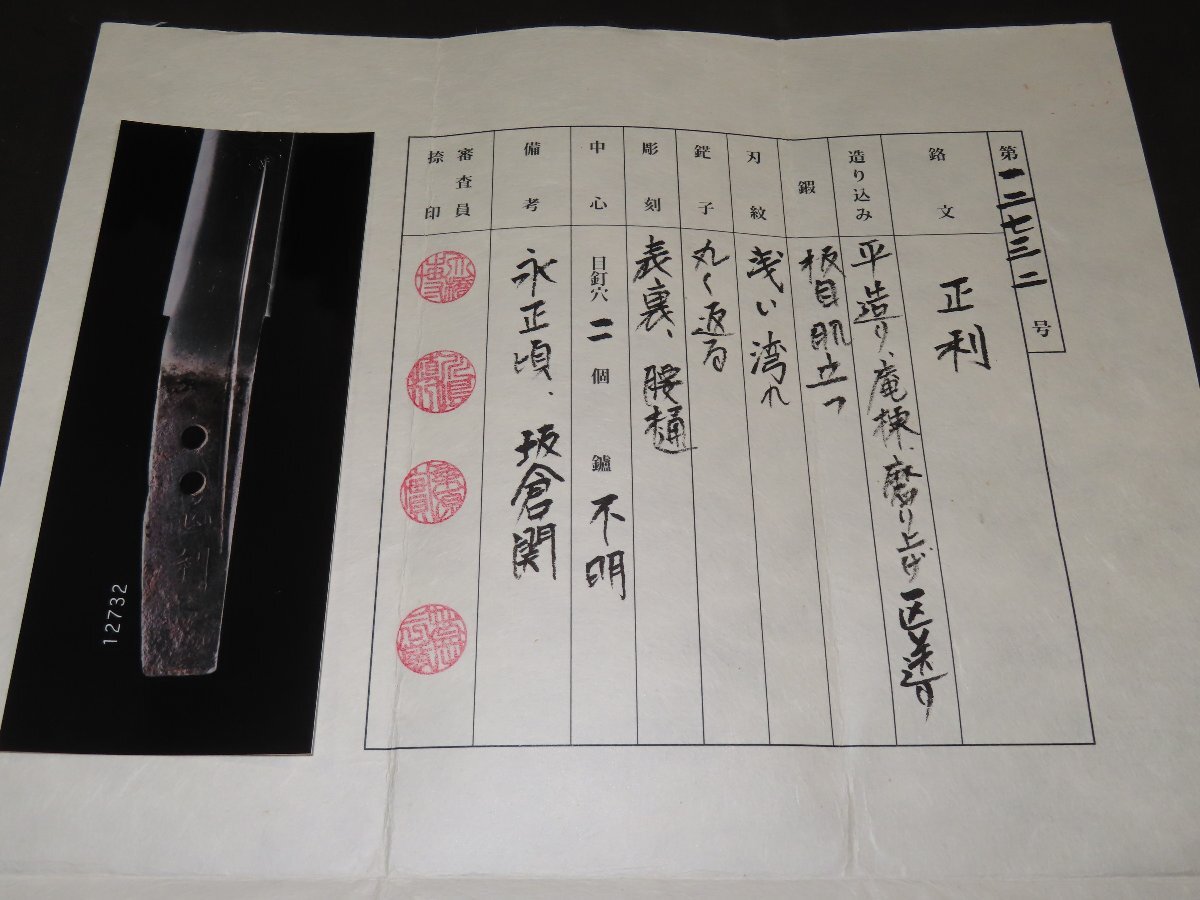 第一二七三二号
銘文
正利
造り込み
平造り、庵棟、磨り上げ区送り
鍜
板目肌立つ
刃紋
浅い湾れ
鋩子
丸く返る
彫刻
表裏、腰樋
中心
目釘穴 二 個 鑢 不明
備考
永正頃、坂倉関
審査員
捺印
正利
12732